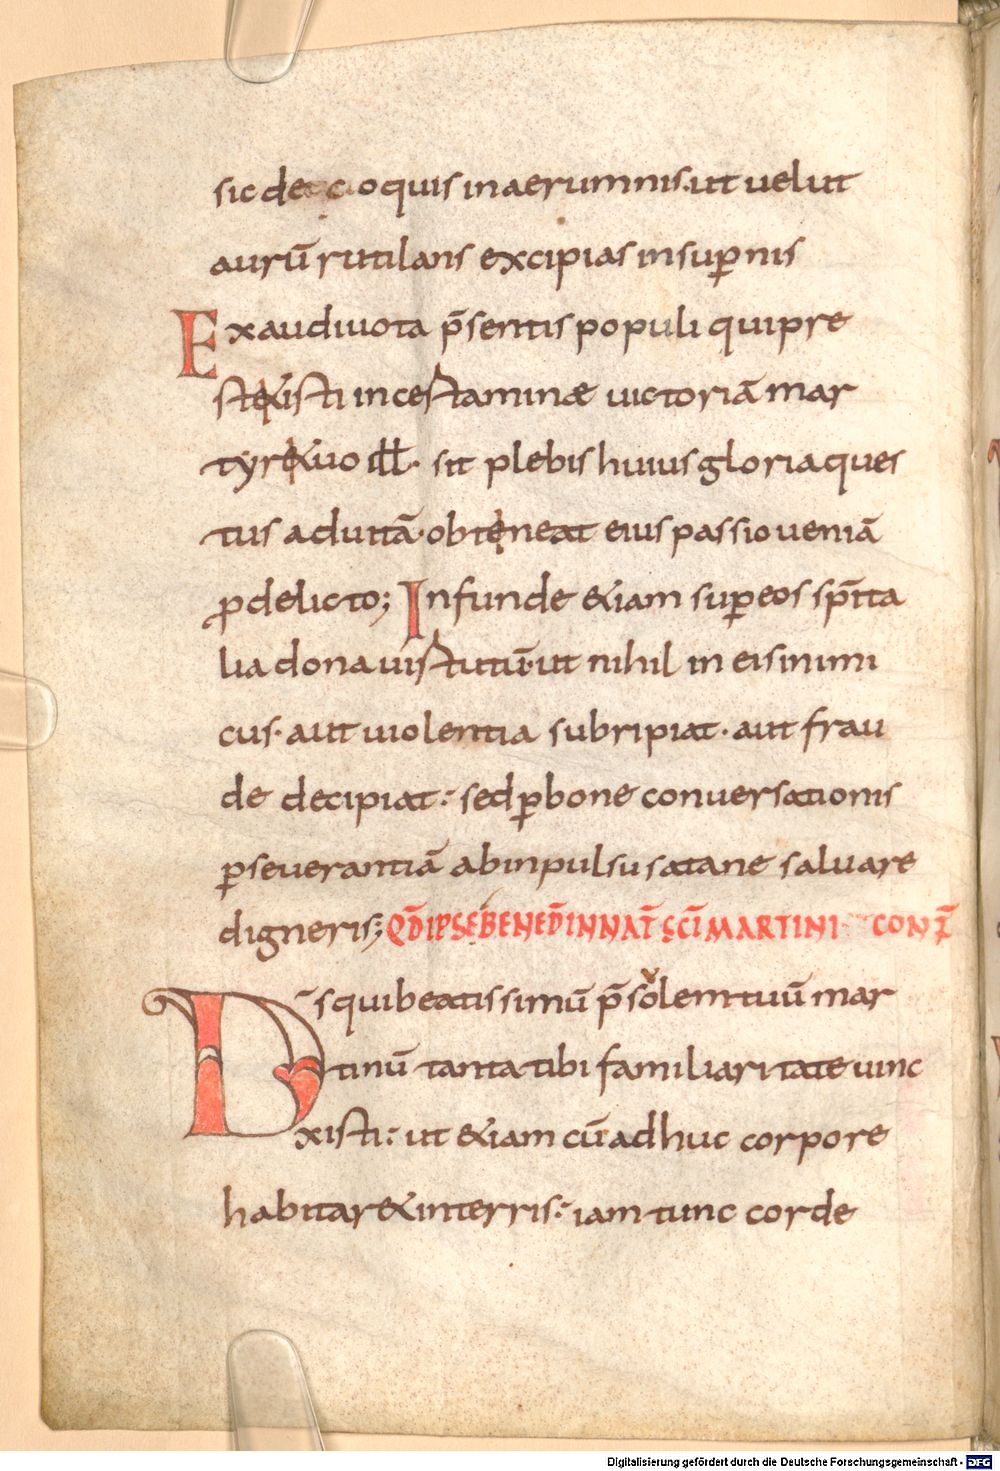 sic de c oquis in aerumnis. ut uelut
aurū rutilans excipias in sup̄nis
Exaudi uota p̄sentis populi qui pre
stetisti in certamine uictoriā mar
tyre tuo ill. sit plebis huius gloria ques
tus ad uitā. obteneat eius passio ueniā
p̄ delicto; Infunde etiam sup̄ eos sp̄ita
lia dona uirtutū. ut nihil in eis inimi
cus. aut uiolentia subripiat. aut frau
de decipiat: sed p̄ bone conuersationis
p̄seuerantiā ab inpulsu satane saluare
digneris; QD̄ IPSE BENED̄ IN NAT̄ SC̄I MARTINI CONF̄
Ds̄ qui beatissimū p̄solem tuū mar
tinū tanta tibi familiaritate uinc
xisti: ut etiam cū adhuc corpore
habitaret in terris: iam tunc corde
Digitalisierung gefördert durch die Deutsche Forschungsgemeinschaft - DFG